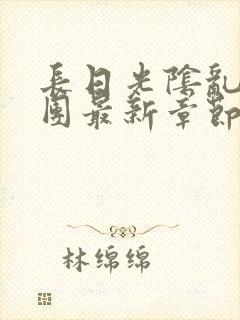 長日光陰亂
團最新章節
林绵绵